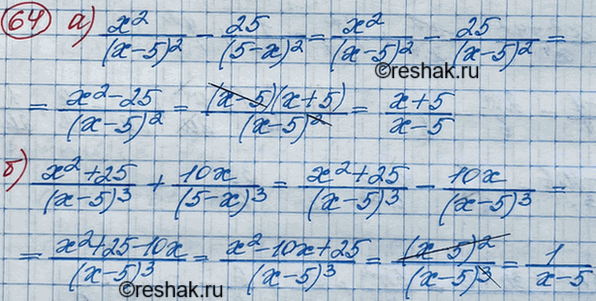 64 а) x²/(x-5)² - 25/(5-x)² = x²/(x-5)² - 25/(x-5)² =
©reshak.ru
= x²-25/(x-5)² = (x-5)(x+5)/(x-5)² = x+5/x-5
б) x²+25/(x-5)³ + 10x/(5-x)³ = x²+25/(x-5)³ - 10x/(x-5)³ =
= x²+25-10x/(x-5)³ = x²-10x+25/(x-5)³ = (x-5)²/(x-5)³ = 1/x-5
©reshak.ru